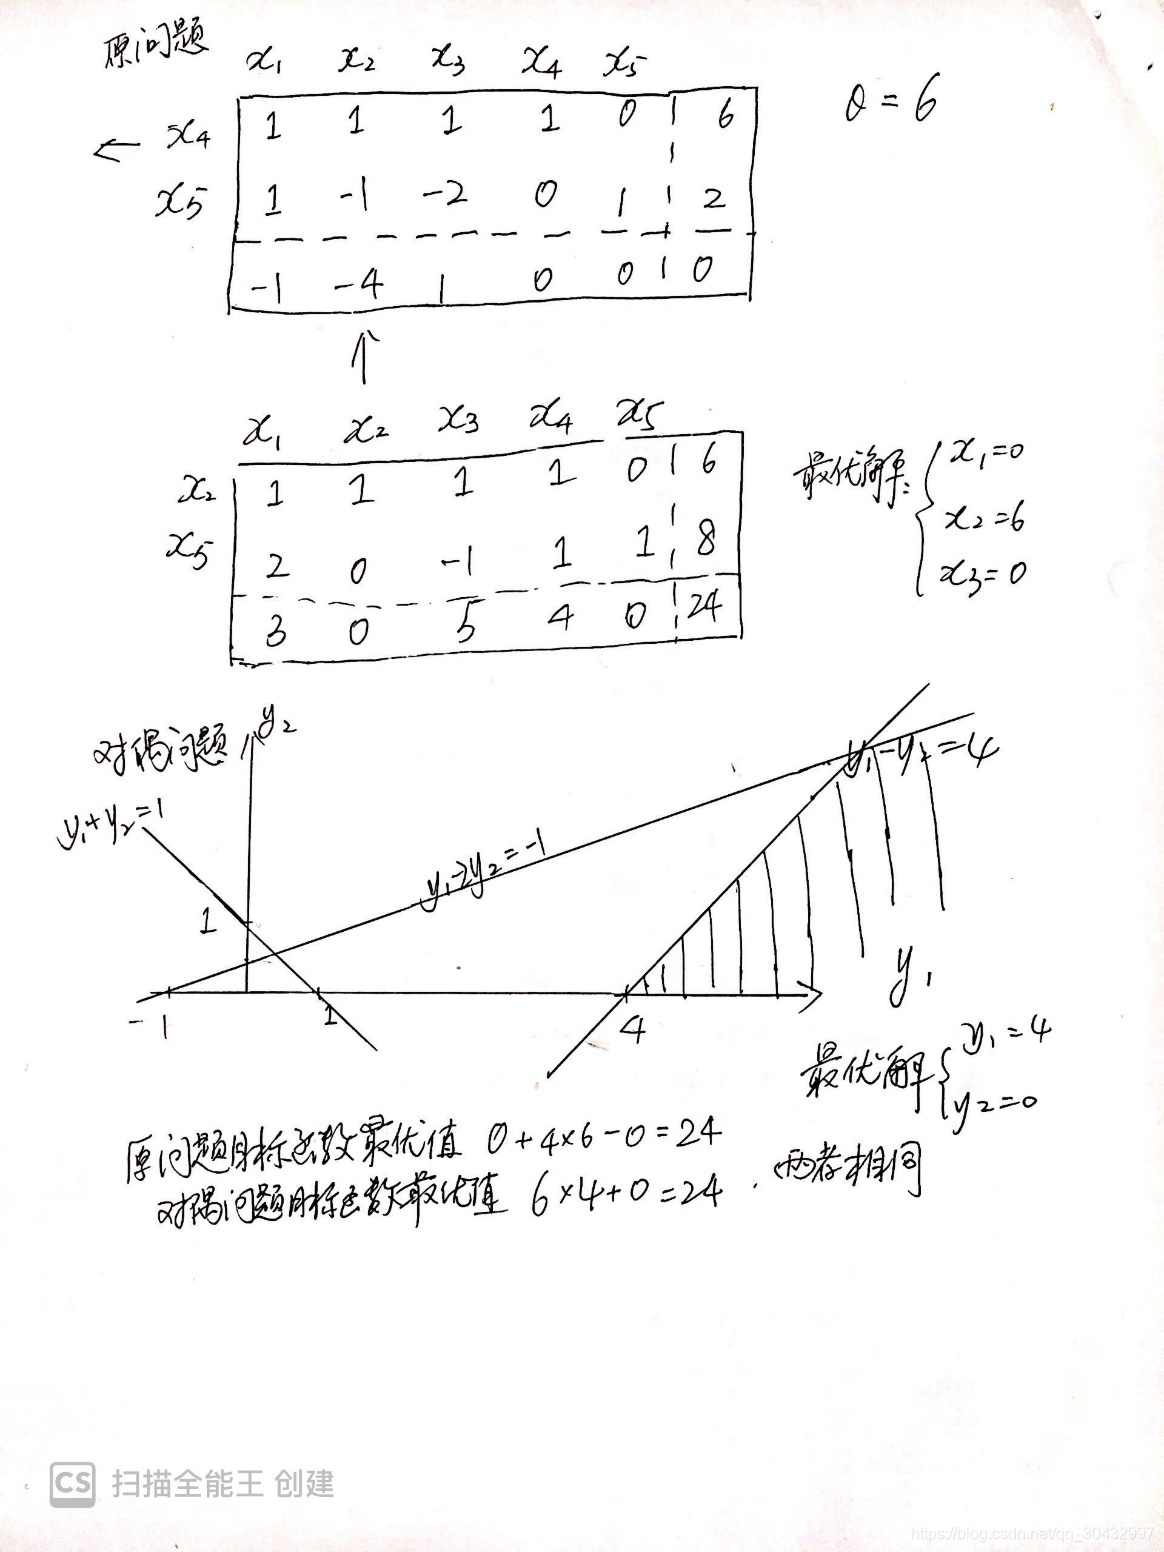 原问题
x₁ x₂ x₃ x₄ x₅
x₄ 1 1 1 1 0 6
x₅ 1 -1 -2 0 1 2
-1 -4 1 0 0 0
θ = 6
x₁ x₂ x₃ x₄ x₅
x₂ 1 1 1 1 0 6
x₅ 2 0 -1 1 1 8
3 0 5 4 0 24
最优解:
x₁=0
x₂=6
x₃=0
对偶问题
y₂
y₁+y₂=1
y₁-2y₂=-1
y₁-y₂=4
1
-1
1
4
y₁
最优解
y₁=4
y₂=0
原问题目标函数最优值 0+4×6-0=24
对偶问题目标函数最优值 6×4+0=24 . 两者相同
CS 扫描全能王 创建
https://blog.csdn.net/qq_30432997